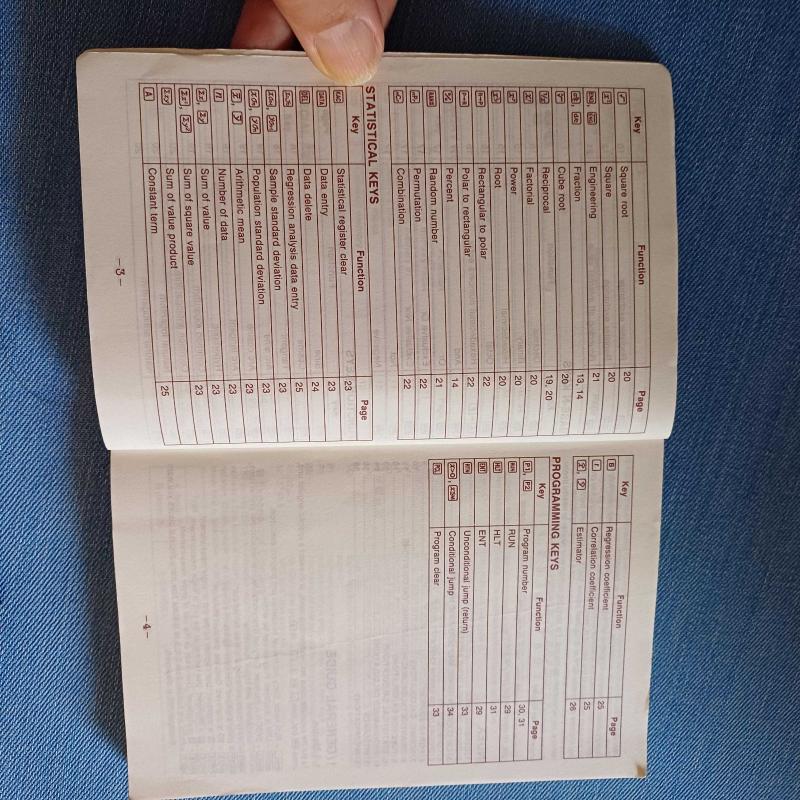 Key Function Page
√ Square root 20
x² Square 20
ENG, Engineering 21
Fraction 13, 14
Cube root 20
Reciprocal 19, 20
x! Factorial 20
xʸ Power 20
Root 20
R→P Rectangular to polar 22
P→R Polar to rectangular 22
% Percent 14
RAN# Random number 21
nPr Permutation 22
nCr Combination 22
STATISTICAL KEYS
Key Function Page
KAC Statistical register clear 23
DATA Data entry 23
DEL Data delete 24
Regression analysis data entry 25
xσn-1, yσn-1 Sample standard deviation 23
xσn, yσn Population standard deviation 23
x̄, ȳ Arithmetic mean 23
n Number of data 23
Σx, Σy Sum of value 23
Σx², Σy² Sum of square value 23
Σxy Sum of value product
A Constant term 25
–3–
Key Function Page
B Regression coefficient 25
r Correlation coefficient 25
x̂, ŷ Estimator 26
PROGRAMMING KEYS
Key Function Page
P1, P2 Program number 30, 31
RUN RUN 29
HLT HLT 31
ENT ENT 29
RTN Unconditional jump (return) 33
x>0, x≤M Conditional jump 34
PCL Program clear 33
–4–